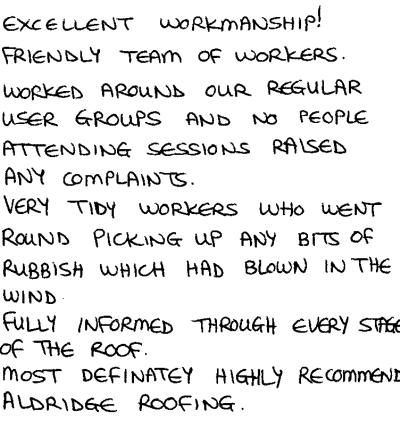 EXCELLENT WORKMANSHIP!
FRIENDLY TEAM OF WORKERS.
WORKED AROUND OUR REGULAR
USER GROUPS AND NO PEOPLE
ATTENDING SESSIONS RAISED
ANY COMPLAINTS.
VERY TIDY WORKERS WHO WENT
ROUND PICKING UP ANY BITS OF
RUBBISH WHICH HAD BLOWN IN THE
WIND.
FULLY INFORMED THROUGH EVERY STAGE
OF THE ROOF.
MOST DEFINATEY HIGHLY RECOMMEND
ALDRIDGE ROOFING.